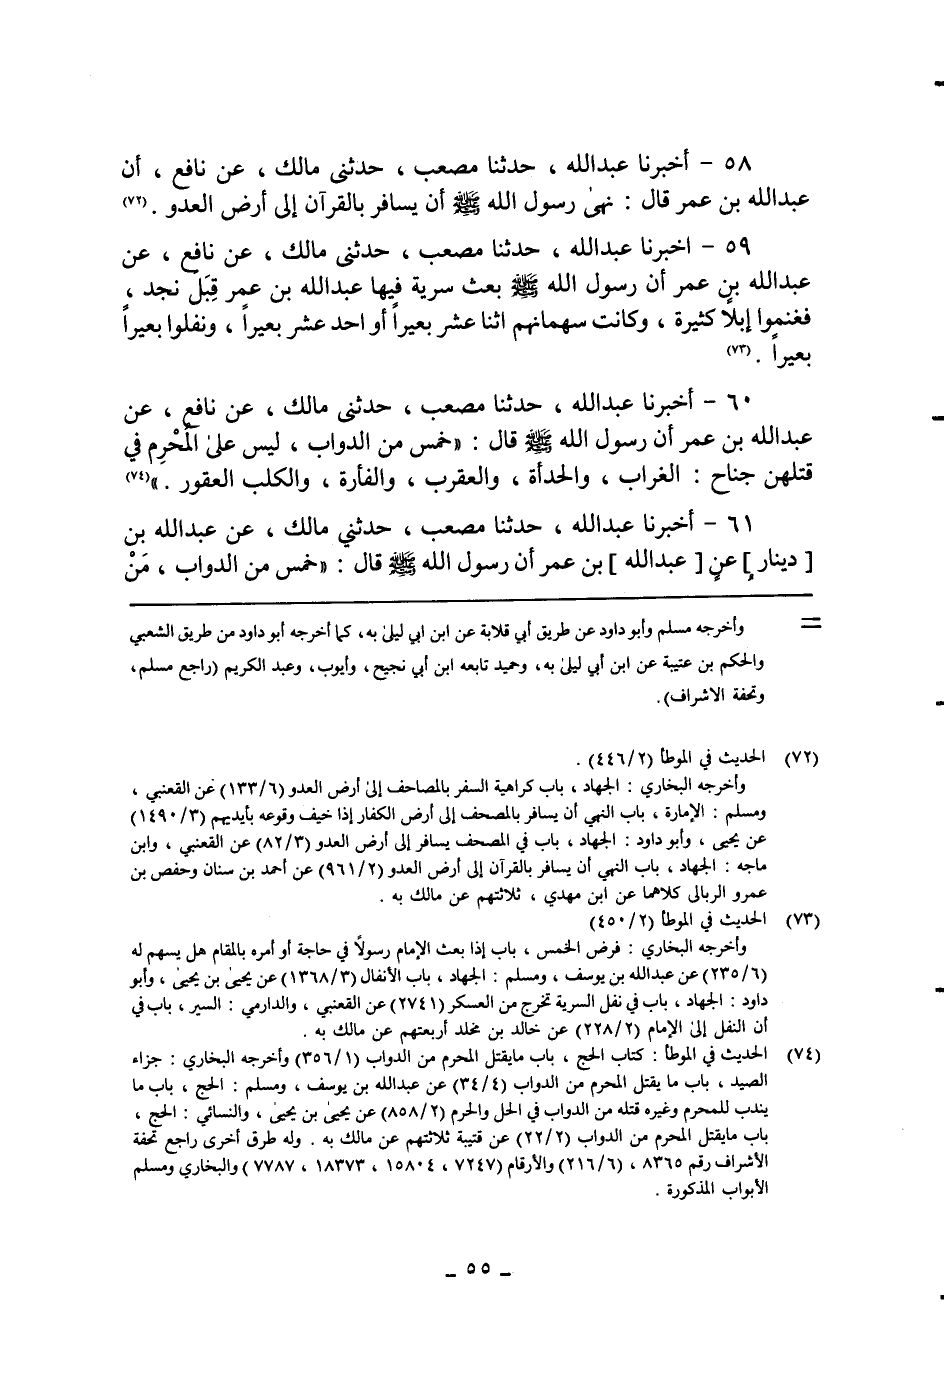 ٥٨ - أخبرنا عبدالله ، حدثنا مصعب ، حدثنى مالك ، عن نافع ، أن
عبدالله بن عمر قال : نهىٰ رسول الله ﷺ أن يسافر بالقرآن إلى أرض العدو . (٧٢)
٥٩ - اخبرنا عبدالله ، حدثنا مصعب ، حدثنى مالك ، عن نافع ، عن
عبدالله بن عمر أن رسول الله ﷺ بعث سرية فيها عبدالله بن عمر قِبَل نجد ،
فغنموا إبلاً كثيرة ، وكانت سهمانهم اثنا عشر بعيراً أو احد عشر بعيراً ، ونفلوا بعيراً
بعيراً . (٧٣)
٦٠ - أخبرنا عبدالله ، حدثنا مصعب ، حدثنى مالك ، عن نافع ، عن
عبدالله بن عمر أن رسول الله ﷺ قال : «خمس من الدواب ، ليس علىٰ المُحْرِم في
قتلهن جناح : الغراب ، والحدأة ، والعقرب ، والفأرة ، والكلب العقور . »(٧٤)
٦١ - أخبرنا عبدالله ، حدثنا مصعب ، حدثني مالك ، عن عبدالله بن
[ دينار ] عن [ عبدالله ] بن عمر أن رسول الله ﷺ قال : «خمس من الدواب ، مَنْ
= وأخرجه مسلم وأبو داود عن طريق أبي قلابة عن ابن ابي ليلىٰ به، كما أخرجه أبو داود من طريق الشعبي
والحكم بن عتيبة عن ابن أبي ليلىٰ به، وحميد تابعه ابن أبي نجيح، وأيوب، وعبد الكريم (راجع مسلم،
وتحفة الاشراف).
(٧٢) الحديث في الموطأ (٤٤٦/٢) .
وأخرجه البخاري : الجهاد ، باب كراهية السفر بالمصاحف إلىٰ أرض العدو (١٣٣/٦) عن القعنبي ،
ومسلم : الإمارة ، باب النهي أن يسافر بالمصحف إلى أرض الكفار إذا خيف وقوعه بأيديهم (١٤٩٠/٣)
عن يحيى ، وأبو داود : الجهاد ، باب في المصحف يسافر إلى أرض العدو (٨٢/٣) عن القعنبي ، وابن
ماجه : الجهاد ، باب النهي أن يسافر بالقرآن إلى أرض العدو (٩٦١/٢) عن أحمد بن سنان وحفص بن
عمرو الربالى كلاهما عن ابن مهدي ، ثلاثتهم عن مالك به .
(٧٣) الحديث في الموطأ (٤٥٠/٢)
وأخرجه البخاري : فرض الخمس ، باب إذا بعث الإمام رسولاً في حاجة أو أمره بالمقام هل يسهم له
(٢٣٥/٦) عن عبدالله بن يوسف ، ومسلم : الجهاد ، باب الأنفال (١٣٦٨/٣) عن يحيىٰ بن يحيىٰ ، وأبو
داود : الجهاد ، باب في نفل السرية تخرج من العسكر (٢٧٤١) عن القعنبي ، والدارمي : السير ، باب في
أن النفل إلىٰ الإمام (٢٢٨/٢) عن خالد بن مخلد أربعتهم عن مالك به .
(٧٤) الحديث في الموطأ : كتاب الحج ، باب مايقتل المحرم من الدواب (٣٥٦/١) وأخرجه البخاري : جزاء
الصيد ، باب ما يقتل المحرم من الدواب (٣٤/٤) عن عبدالله بن يوسف ، ومسلم : الحج ، باب ما
يندب للمحرم وغيره قتله من الدواب في الحل والحرم (٨٥٨/٢) عن يحيىٰ بن يحيىٰ ، والنسائي : الحج ،
باب مايقتل المحرم من الدواب (٢٢/٢) عن قتيبة ثلاثتهم عن مالك به . وله طرق أخرى راجع تحفة
الأشراف رقم ٨٣٦٥ ، (٢١٦/٦) والأرقام (٧٢٤٧ ، ١٥٨٠٤ ، ١٨٣٧٣ ، ٧٧٨٧ )والبخاري ومسلم
الأبواب المذكورة .
ـ ٥٥ ـ